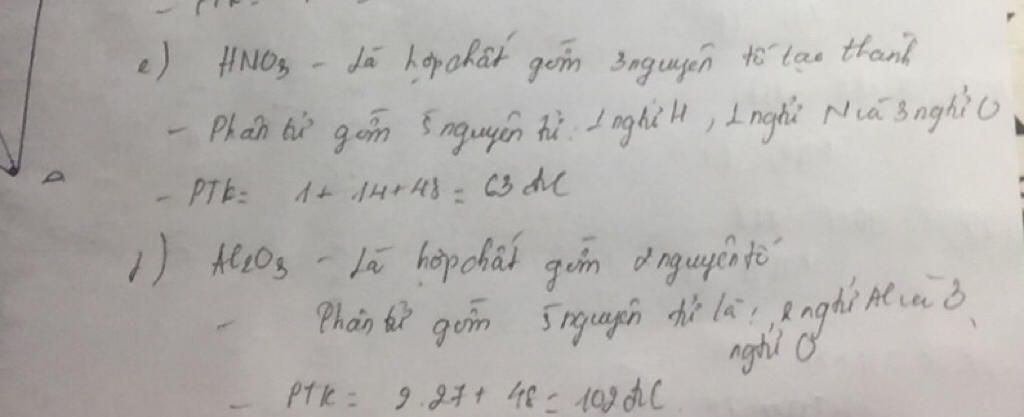 - PTK =
e) HNO3 - Là hợp chất gồm 3 nguyên tố tạo thành
- Phân tử gồm 5 nguyên tử: 1 nghtử H, 1 nghtử N và 3 nghtử O
- PTK = 1 + 14 + 48 = 63 đvC
f) Al2O3 - Là hợp chất gồm 2 nguyên tố
- Phân tử gồm 5 nguyên tử là: 2 nghtử Al và 3
nghtử O
- PTK = 2.27 + 48 = 102 đvC